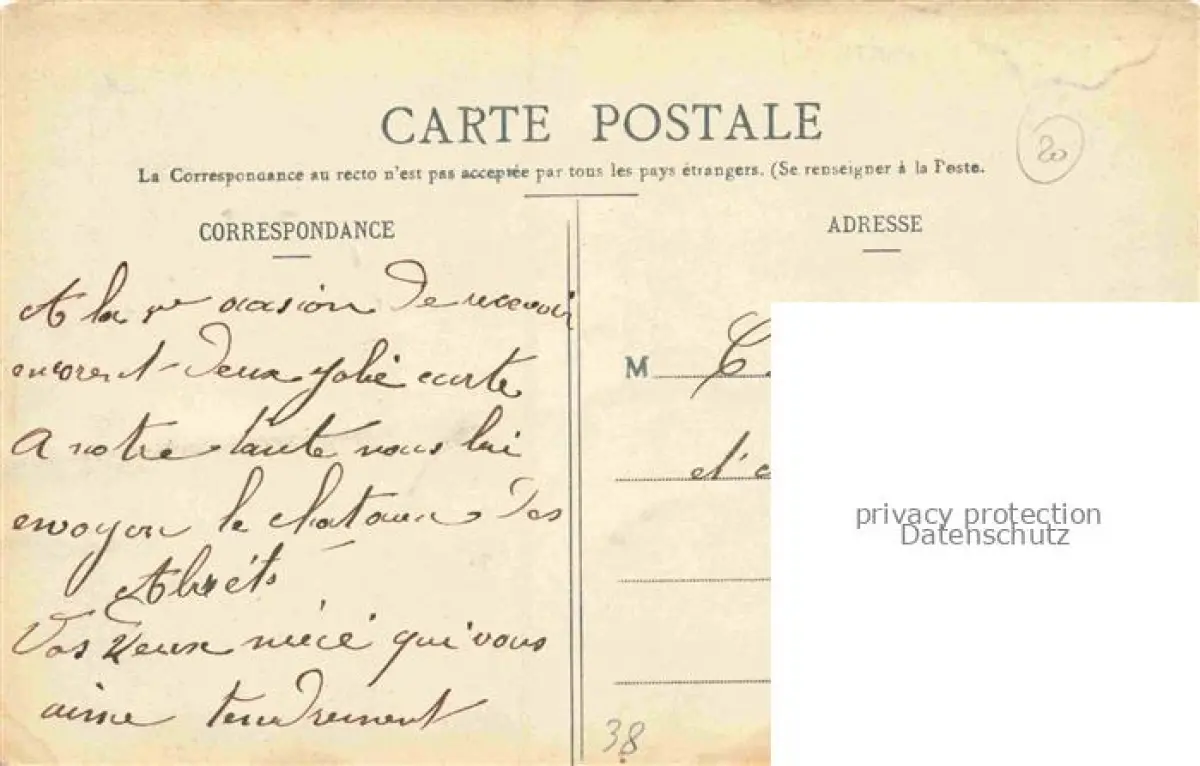 CARTE POSTALE
La Correspondance au recto n'est pas acceptée par tous les pays étrangers. (Se renseigner à la Poste.
CORRESPONDANCE
ADRESSE
20
A la 1re ocasion de recevoir
encore deux jolie carte
M
A notre tante nous lui
d'
envoyon le chataux des
Abrets
Vos deux niece qui vous
aime tendrement
38
privacy protection
Datenschutz